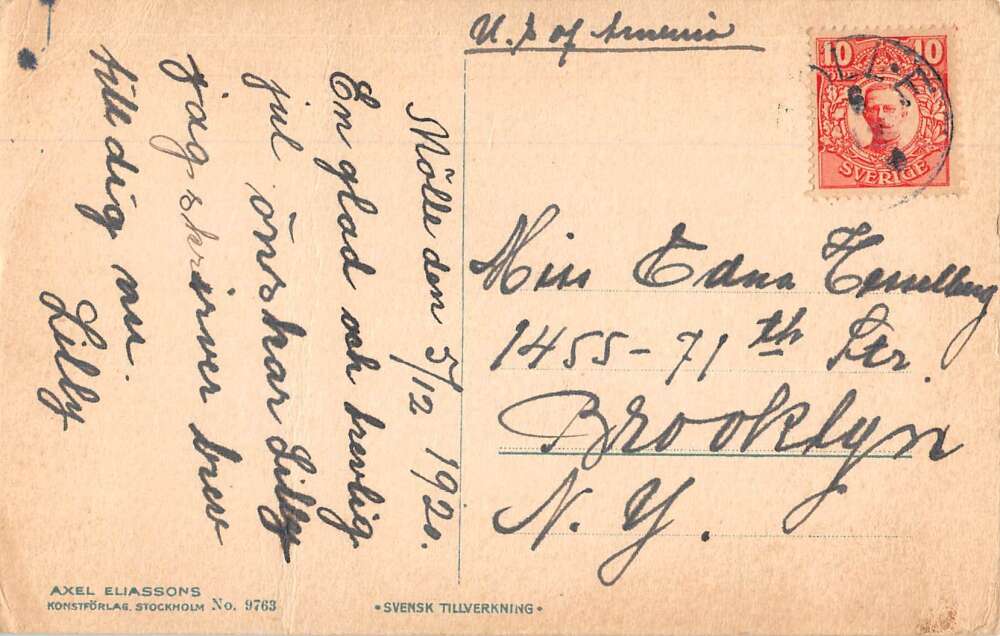 U. S. of America
10 10
SVERIGE
Mölle den 5/12 1920.
En glad och trevlig
jul önskar Lilly
Jag skriver brev
till dig nu.
Lilly
Miss Edna
1455-71 th Str.
Brooklyn
N. Y.
AXEL ELIASSONS
KONSTFÖRLAG. STOCKHOLM No. 9763
• SVENSK TILLVERKNING •